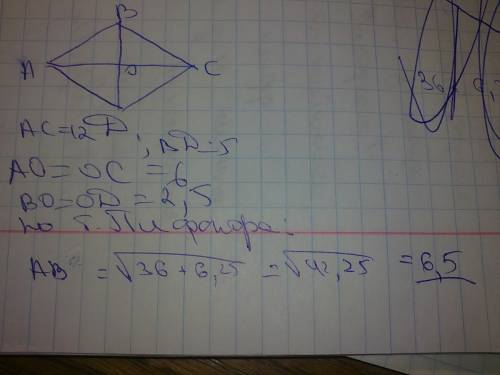 B
A O C
D
AC=12, BD=5
AO=OC=6
BO=OD=2,5
по т. Пифагора:
AB = √36+6,25 = √42,25 = 6,5
36